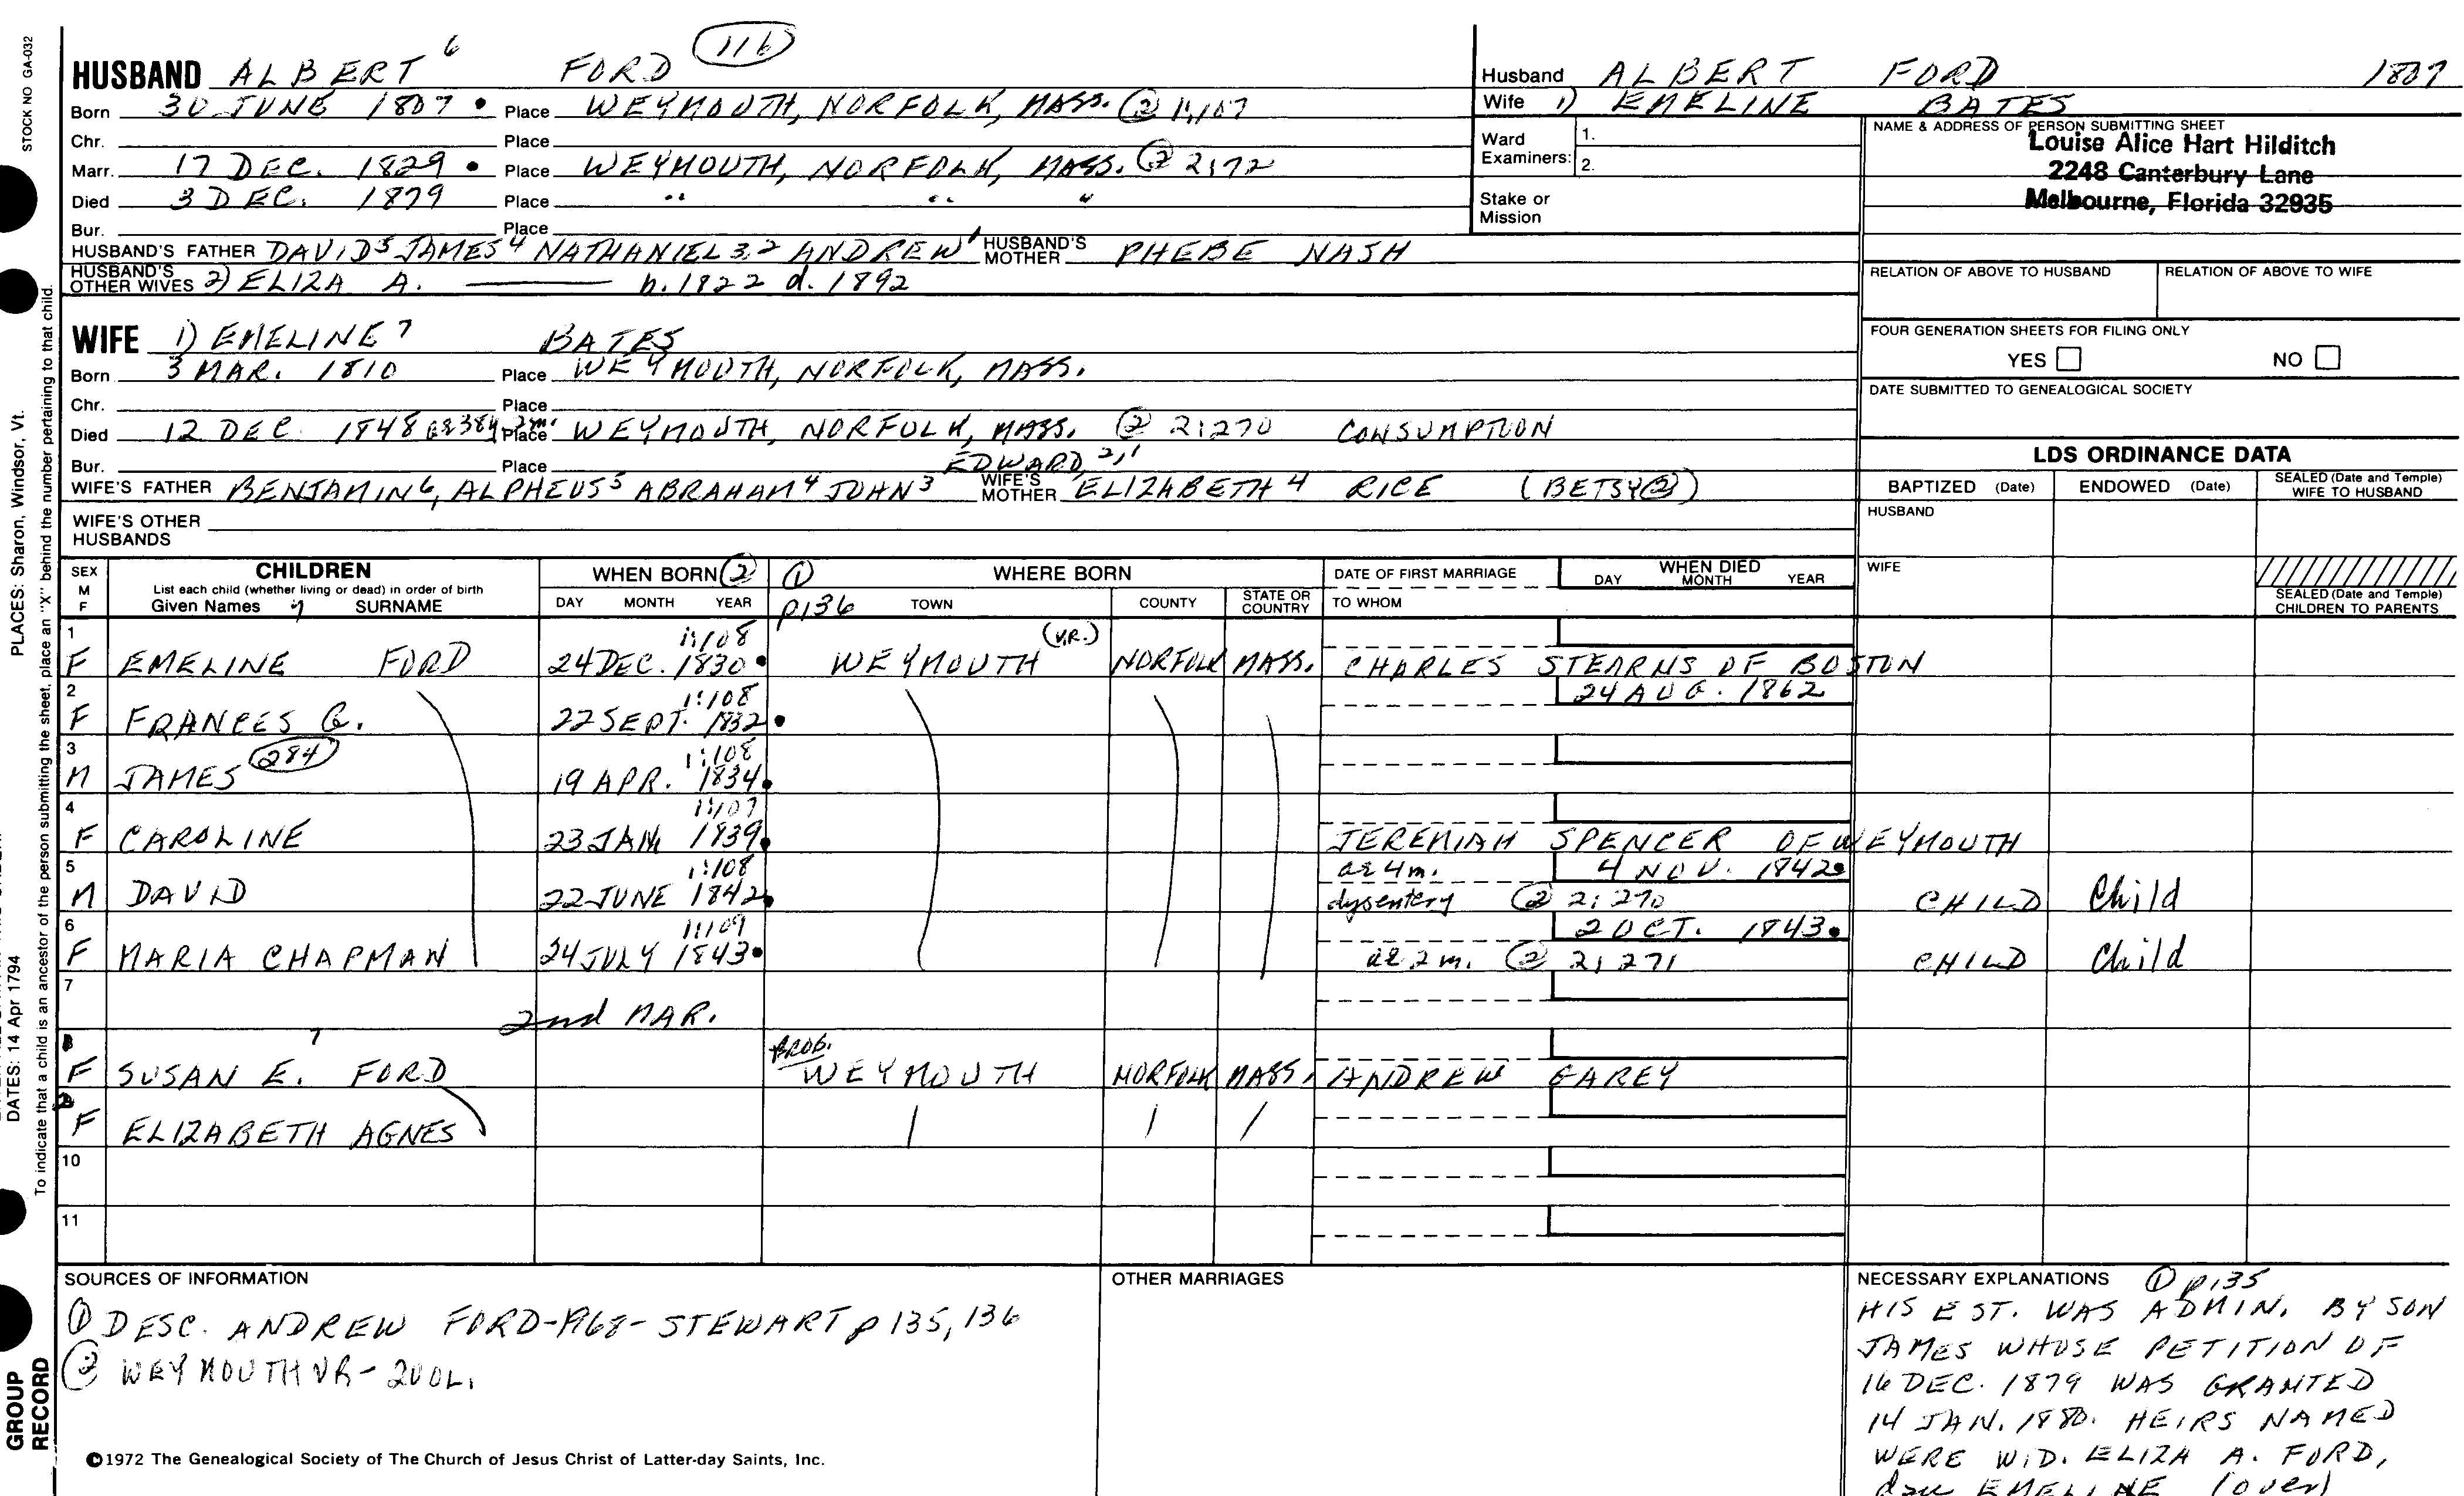 STOCK NO GA-032
PLACES: Sharon, Windsor, Vt.
DATES: 14 Apr 1794
To indicate that a child is an ancestor of the person submitting the sheet, place an "X" behind the number pertaining to that child.
GROUP
RECORD
HUSBAND ALBERT 6 FORD 116
Born 30 JUNE 1807 • Place WEYMOUTH, NORFOLK, MASS. ② 1:107
Chr. Place
Marr. 17 DEC. 1829 • Place WEYMOUTH, NORFOLK, MASS. ② 2:72
Died 3 DEC. 1879 Place " " "
Bur. Place
HUSBAND'S FATHER DAVID5 JAMES4 NATHANIEL3,2 ANDREW1 HUSBAND'S MOTHER PHEBE NASH
HUSBAND'S OTHER WIVES 2) ELIZA A. —— b. 1822 d. 1892
WIFE 1) EMELINE 7 BATES
Born 3 MAR. 1810 Place WEYMOUTH, NORFOLK, MASS.
Chr. Place
Died 12 DEC. 1848 Place WEYMOUTH, NORFOLK, MASS. ② 2:270 CONSUMPTION
Bur. Place EDWARD 2,1
WIFE'S FATHER BENJAMIN6, ALPHEUS5 ABRAHAM4 JOHN3 WIFE'S MOTHER ELIZABETH 4 RICE (BETSY②)
WIFE'S OTHER HUSBANDS
Husband ALBERT FORD 1807
Wife 1) EMELINE BATES
Ward Examiners: 1. 2.
Stake or Mission
NAME & ADDRESS OF PERSON SUBMITTING SHEET
Louise Alice Hart Hilditch
2248 Canterbury Lane
Melbourne, Florida 32935
RELATION OF ABOVE TO HUSBAND RELATION OF ABOVE TO WIFE
FOUR GENERATION SHEETS FOR FILING ONLY
YES NO
DATE SUBMITTED TO GENEALOGICAL SOCIETY
LDS ORDINANCE DATA
BAPTIZED (Date) ENDOWED (Date) SEALED (Date and Temple) WIFE TO HUSBAND
HUSBAND
WIFE
SEALED (Date and Temple) CHILDREN TO PARENTS
SEX M F CHILDREN List each child (whether living or dead) in order of birth Given Names 7 SURNAME
WHEN BORN ② DAY MONTH YEAR
① p136 WHERE BORN TOWN COUNTY STATE OR COUNTRY
DATE OF FIRST MARRIAGE TO WHOM
WHEN DIED DAY MONTH YEAR
1 1:108 (V.R.)
F EMELINE FORD 24 DEC. 1830 • WEYMOUTH NORFOLK MASS. CHARLES STEARNS OF BOSTON
2 1:108 24 AUG. 1862
F FRANCES G. 22 SEPT. 1832 •
3 284 1:108
M JAMES 19 APR. 1834 •
4 1:107
F CAROLINE 23 JAN 1839 • JEREMIAH SPENCER OF WEYMOUTH
5 1:108 ae 4m. 4 NOV. 1842 •
M DAVID 22 JUNE 1842 • dysentery ② 2:270 CHILD Child
6 1:109 2 OCT. 1843 •
F MARIA CHAPMAN 24 JULY 1843 • ae 2 m. ② 2:271 CHILD Child
7
2nd MAR.
7 PROB.
F SUSAN E. FORD WEYMOUTH NORFOLK MASS. ANDREW GAREY
F ELIZABETH AGNES
10
11
SOURCES OF INFORMATION
① DESC. ANDREW FORD-1968-STEWART p 135, 136
② WEYMOUTH VR - 2VOL.
OTHER MARRIAGES
NECESSARY EXPLANATIONS ① p135
HIS EST. WAS ADMIN. BY SON
JAMES WHOSE PETITION OF
16 DEC. 1879 WAS GRANTED
14 JAN. 1880. HEIRS NAMED
WERE WID. ELIZA A. FORD,
dau EMELINE (over)
©1972 The Genealogical Society of The Church of Jesus Christ of Latter-day Saints, Inc.